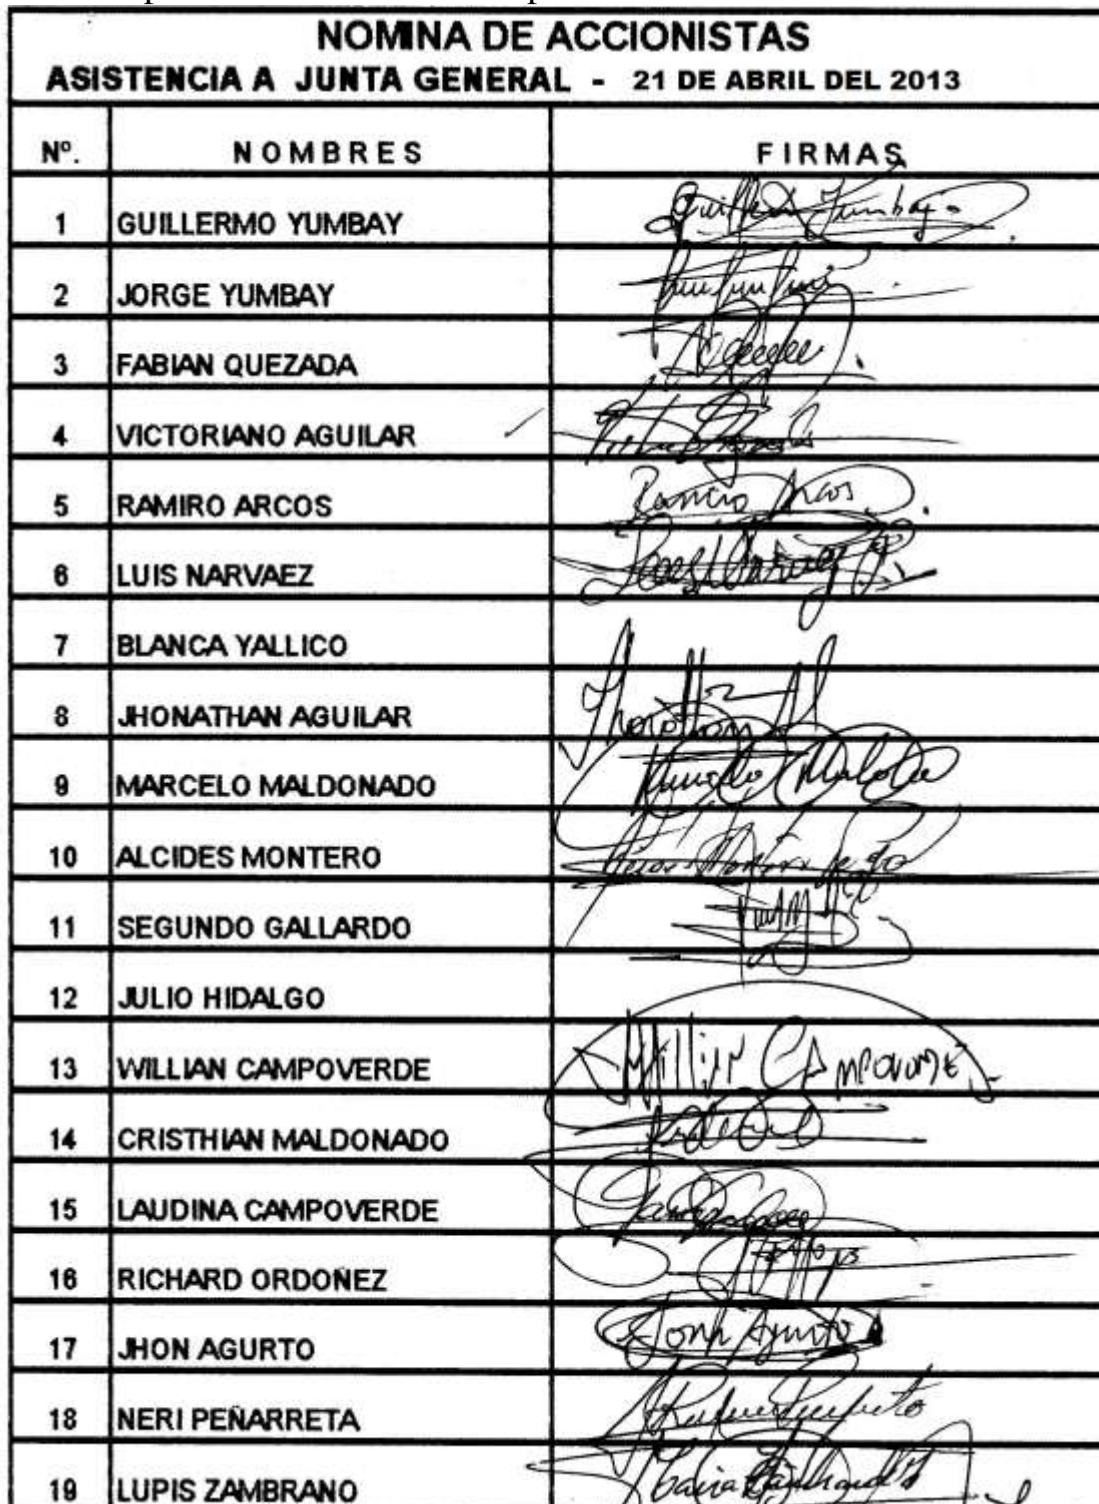 NOMINA DE ACCIONISTAS
ASISTENCIA A JUNTA GENERAL - 21 DE ABRIL DEL 2013
Nº. NOMBRES FIRMAS
1 GUILLERMO YUMBAY Guillermo Yumbay
2 JORGE YUMBAY
3 FABIAN QUEZADA
4 VICTORIANO AGUILAR
5 RAMIRO ARCOS Ramiro Arcos
6 LUIS NARVAEZ
7 BLANCA YALLICO
8 JHONATHAN AGUILAR
9 MARCELO MALDONADO
10 ALCIDES MONTERO
11 SEGUNDO GALLARDO
12 JULIO HIDALGO
13 WILLIAN CAMPOVERDE
14 CRISTHIAN MALDONADO
15 LAUDINA CAMPOVERDE
16 RICHARD ORDOÑEZ
17 JHON AGURTO Jonh Agurto
18 NERI PEÑARRETA
19 LUPIS ZAMBRANO